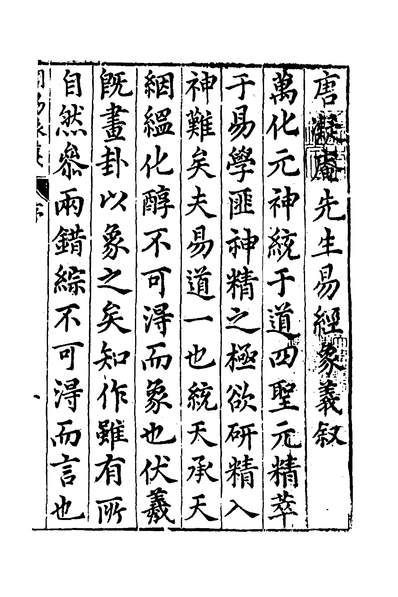 唐凝菴先生易經象義叙
萬化元神統于道四聖元精萃
于易學匪神精之極欲研精入
神難矣夫易道一也統天承天
絪縕化醇不可淂而象也伏羲
既畫卦以象之矣知作雖有所
自然叅兩錯綜不可淂而言也